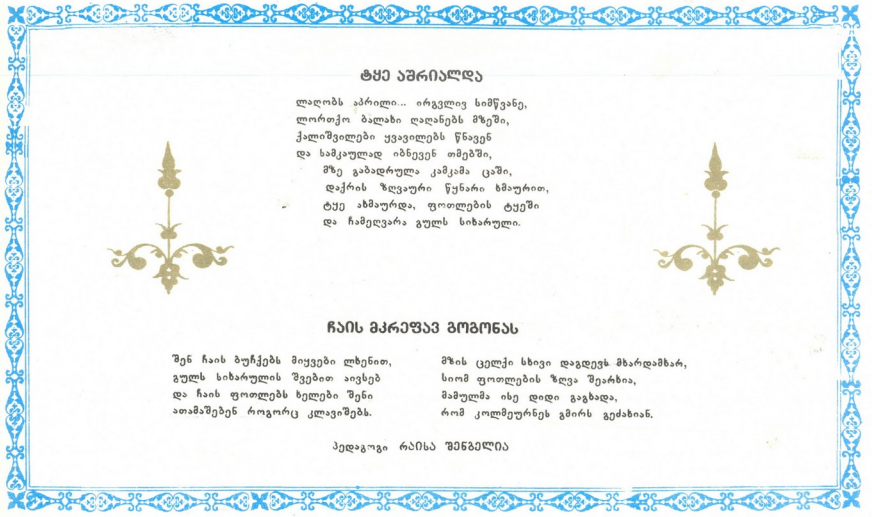 ტყე აშრიალდა
ლაღობს აპრილი... ირგვლივ სიმწვანე,
ლორთქო ბალახი ღაღანებს მზეში,
ქალიშვილები ყვავილებს წნავენ
და სამკაულად იბნევენ თმებში,
მზე გაბადრულა კამკამა ცაში,
დაქრის ზღვაური წყნარი ხმაურით,
ტყე ახმაურდა, ფოთლების ტყეში
და ჩამეღვარა გულს სიხარული.
ჩაის მკრეფავ გოგონას
შენ ჩაის ბუჩქებს მიყვები ლხენით,
გულს სიხარულის შვებით აივსებ
და ჩაის ფოთლებს ხელები შენი
ათამაშებენ როგორც კლავიშებს.
მზის ცელქი სხივი დაგდევს მხარდამხარ,
სიომ ფოთლების ზღვა შეარხია,
მამულმა ისე დიდი გაგხადა,
რომ კოლმეურნეს გმირს გეძახიან.
პედაგოგი რაისა შენგელია